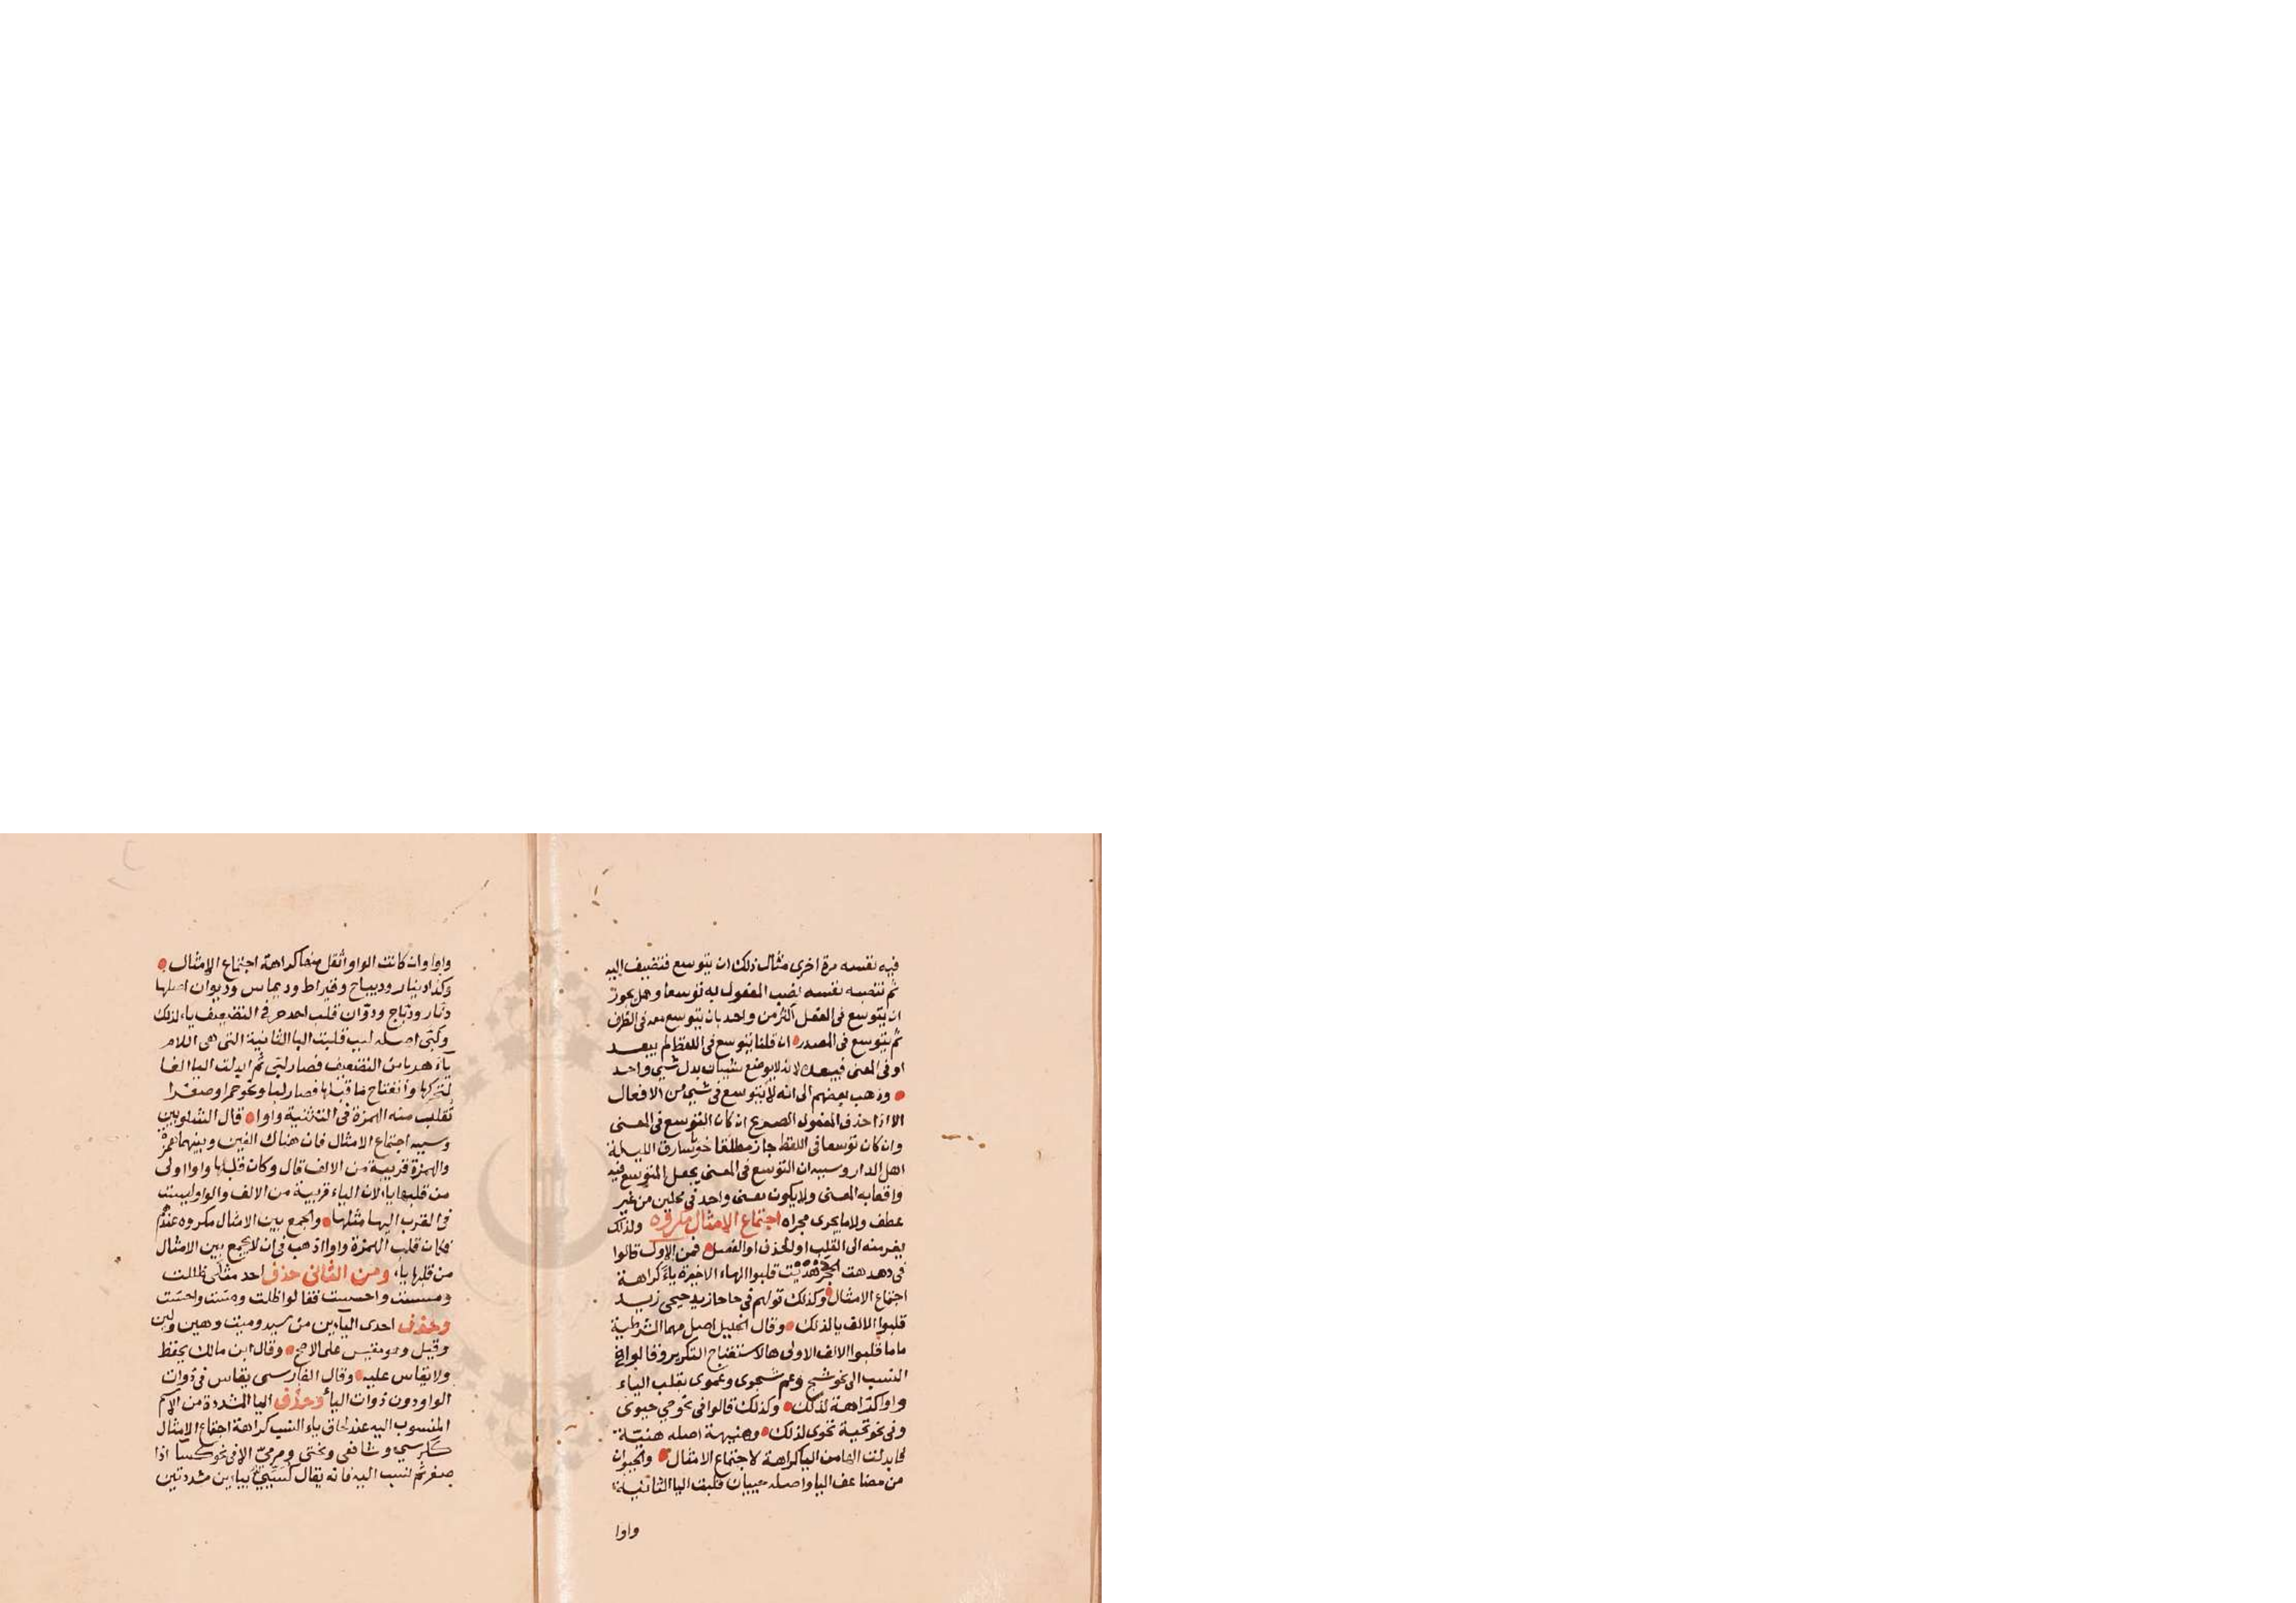 فيه نفسه مرة اخرى مثال ذلك ان يتوسع فتضيف اليه
ثم تنصبه نفسه نصب المفعول به توسعا وهل يجوز
ان يتوسع فى الفعل اكثر من واحد بان يتوسع معه فى الظرف
ثم يتوسع فى المصدر ان قلنا يتوسع فى اللفظ لم يبعد
او فى المعنى فيبعد لانه لا يوضع شيان بدل شيى واحد
وذهب بعضهم الى انه لا يتوسع فى شيى من الافعال
الا اذا حذف المفعول الصريح ان كان التوسع فى المعنى
وان كان توسعا فى اللفظ جاز مطلقا نحو يا سارق الليلة
اهل الدار وسببه ان التوسع فى المعنى يجعل المتوسع فيه
واقعا به المعنى ولا يكون معنى واحد فى محلين من غير
عطف ولا ما يجرى مجراه اجتماع الامثال مكروه ولذلك
يفر منه الى القلب او الحذف او الفصل فمن الاول قالوا
فى دهدهت الحجر دهديت قلبوا الهاء الاخيرة ياء كراهة
اجتماع الامثال وكذلك قولهم فى حاحا زيد حيحى زيد
قلبوا الالف يا لذلك وقال الخليل اصل مهما الشرطية
ما ما قلبوا الالف الاولى ها لاستقباح التكرير وقالوا فى
النسب الى نحو شج وعم شجوى وعموى بقلب الياء
واوا كراهة لذلك وكذلك قالوا فى نحو حي حيوى
وفى نحو تحية تحوى لذلك وهنيهة اصله هنية
فابدلت الها من اليا كراهة لاجتماع الامثال والحيوان
من مضاعف اليا واصله حييان قلبت اليا الثانية
واوا
واوا وان كانت الواو اثقل منها كراهة اجتماع الامثال
وكذا دينار وديباج وقيراط وديماس وديوان اصلها
دنار ودباج ودوان قلب احد حرفى التضعيف ياء لذلك
ولبى اصله لبب قلبت البا الثانية التى هى اللام
ياء هربا من التضعيف فصار لبى ثم ابدلت اليا الفا
لتحركها وانفتاح ما قبلها فصار لبا ونحو حمرا وصفرا
تقلب منه الهمزة فى التثنية واوا قال الشلوبين
وسببه اجتماع الامثال فان هناك الفين وبينهما همزة
والهمزة قريبة من الالف قال وكان قلبها واوا اولى
من قلبها ياء لان الياء قريبة من الالف والواو ليست
فى القرب اليها مثلها والجمع بين الامثال مكروه عندهم
فكان قلب الهمزة واوا اذهب فى ان لا يجمع بين الامثال
من قلبها ياء ومن الثانى حذف احد مثلى ظللت
ومسست واحسست فقالوا ظلت ومست واحست
وحذف احدى الياءين من سيد وميت وهين ولين
وقيل وهو مقيس على الاصح وقال ابن مالك يحفظ
ولا يقاس عليه وقال الفارسى يقاس فى ذوات
الواو دون ذوات اليا وحذف اليا المشددة من الاسم
المنسوب اليه عند لحاق ياء النسب كراهة اجتماع الامثال
ككرسي وشافعى وبختى ومرمي الا فى نحو كسا اذا
صغر ثم نسب اليه فانه يقال كسيي بياءين مشددتين